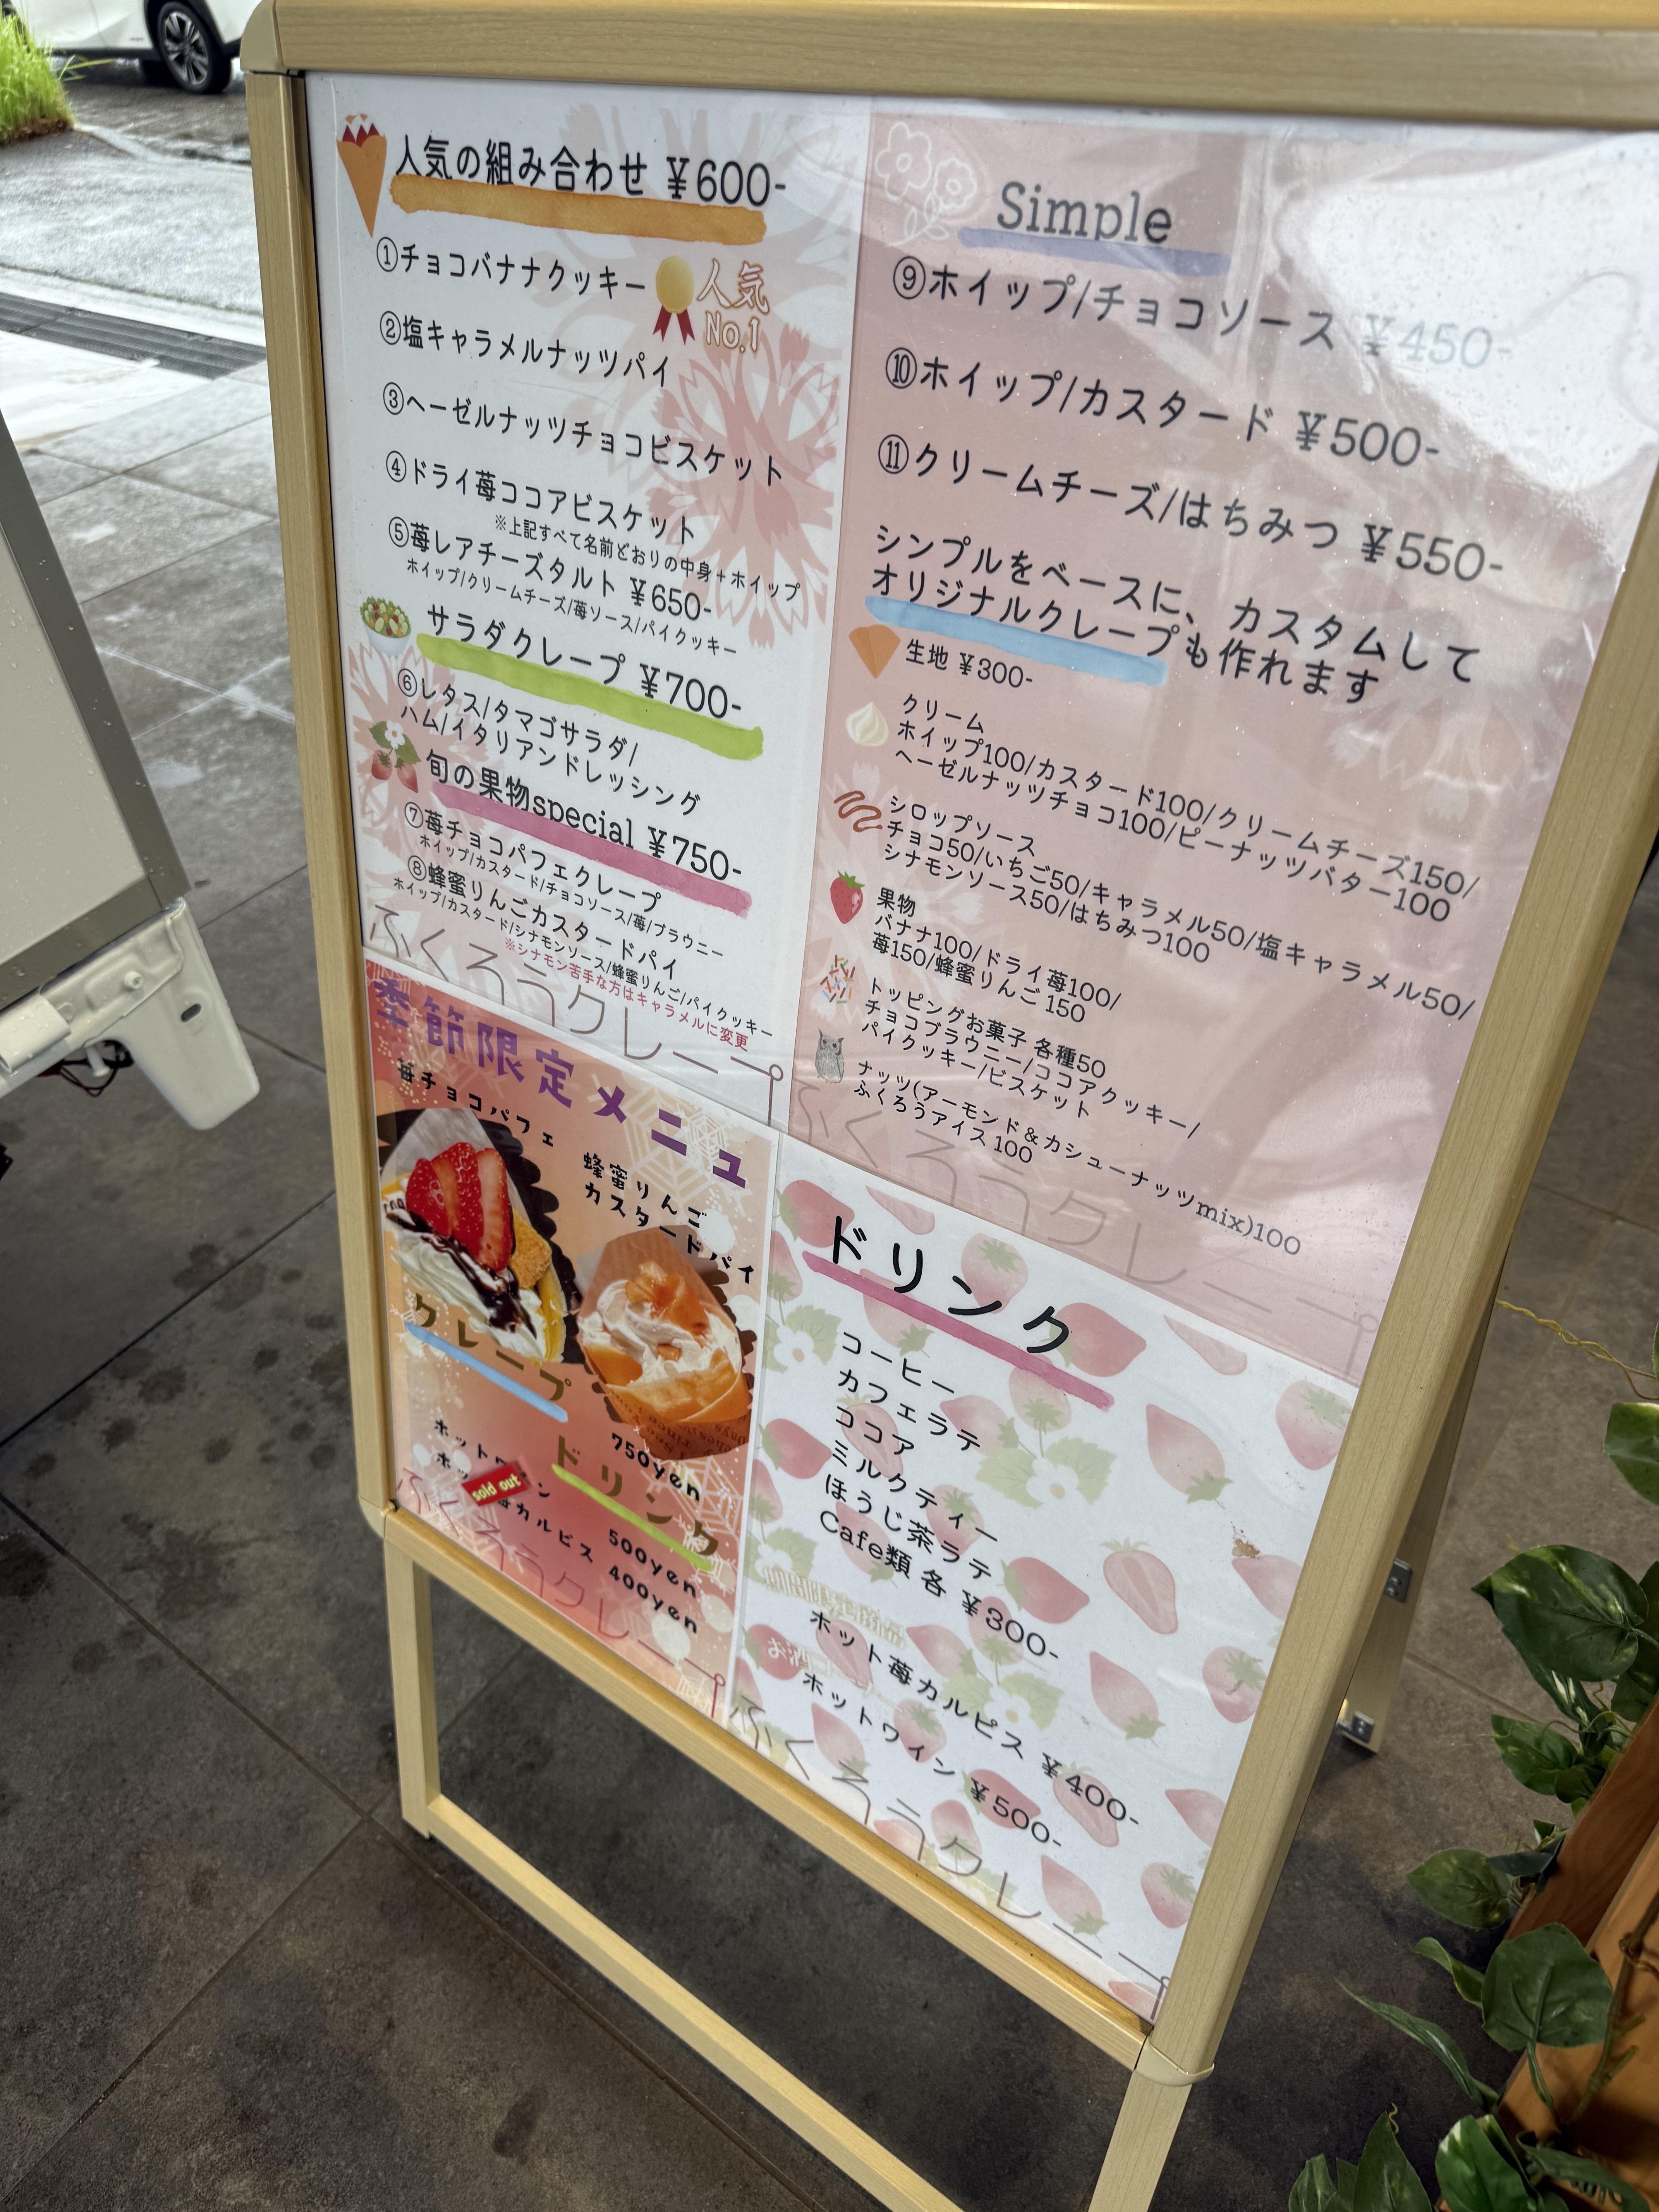 人気の組み合わせ ¥600-
①チョコバナナクッキー
人気
No.1
②塩キャラメルナッツパイ
③ヘーゼルナッツチョコビスケット
④ドライ苺ココアビスケット
※上記すべて名前どおりの中身+ホイップ
⑤苺レアチーズタルト ¥650-
ホイップ/クリームチーズ/苺ソース/パイクッキー
サラダクレープ ¥700-
⑥レタス/タマゴサラダ/
ハム/イタリアンドレッシング
旬の果物special ¥750-
⑦苺チョコパフェクレープ
ホイップ/カスタード/チョコソース/苺/ブラウニー
⑧蜂蜜りんごカスタードパイ
ホイップ/カスタード/シナモンソース/蜂蜜りんご/パイクッキー
※シナモン苦手な方はキャラメルに変更
ふくろうクレープ
Simple
⑨ホイップ/チョコソース ¥450-
⑩ホイップ/カスタード ¥500-
⑪クリームチーズ/はちみつ ¥550-
シンプルをベースに、カスタムして
オリジナルクレープも作れます
生地 ¥300-
クリーム
ホイップ100/カスタード100/クリームチーズ150/
ヘーゼルナッツチョコ100/ピーナッツバター100
シロップソース
チョコ50/いちご50/キャラメル50/塩キャラメル50/
シナモンソース50/はちみつ100
果物
バナナ100/ドライ苺100/
苺150/蜂蜜りんご150
トッピングお菓子 各種50
チョコブラウニー/ココアクッキー/
パイクッキー/ビスケット
ナッツ(アーモンド&カシューナッツmix)100
ふくろうアイス100
ふくろうクレープ
季節限定メニュー
苺チョコパフェ
蜂蜜りんご
カスタードパイ
クレープ
750yen
ドリンク
ホットワイン
500yen
sold out
苺カルピス
400yen
ふくろうクレープ
ドリンク
コーヒー
カフェラテ
ココア
ミルクティー
ほうじ茶ラテ
Cafe類 各 ¥300-
ホット苺カルピス ¥400-
ホットワイン ¥500-
ふくろうクレープ